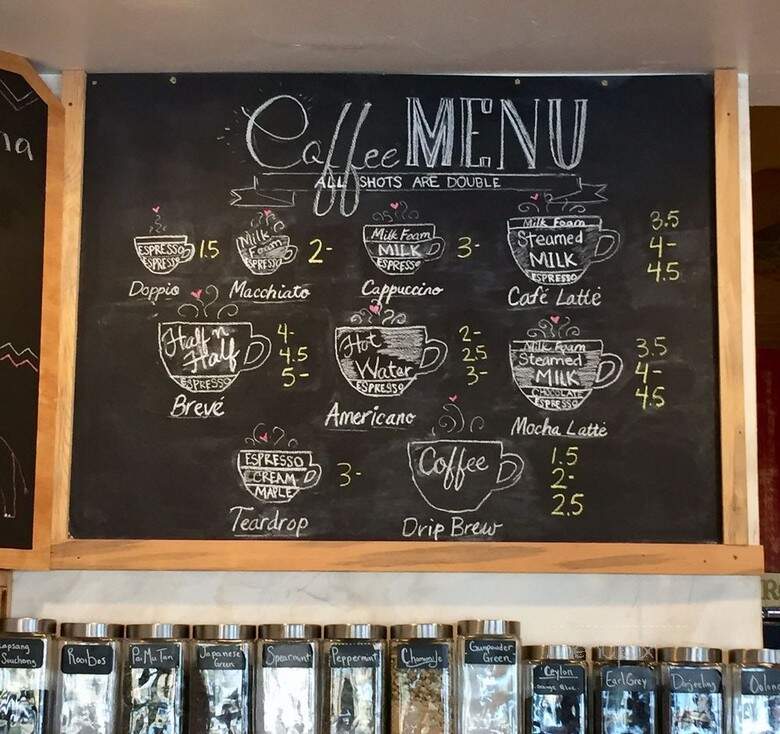 Coffee MENU
ALL SHOTS ARE DOUBLE
ESPRESSO
ESPRESSO
1.5
Doppio
Milk
Foam
ESPRESSO
2-
Macchiato
Milk Foam
MILK
ESPRESSO
3-
Cappuccino
Milk Foam
Steamed
MILK
ESPRESSO
3.5
4-
4.5
Café Latté
Half n
Half
ESPRESSO
4-
4.5
5-
Brevé
Hot
Water
ESPRESSO
2-
2.5
3-
Americano
Milk Foam
Steamed
MILK
CHOCOLATE
ESPRESSO
3.5
4-
4.5
Mocha Latté
ESPRESSO
CREAM
MAPLE
3-
Teardrop
Coffee
1.5
2-
2.5
Drip Brew
na
Lapsang
Souchong
Rooibos
Pai Mu Tan
Japanese
Green
Spearmint
Peppermint
Chamomile
Gunpowder
Green
Ceylon
Earl Grey
Darjeeling
Oolong